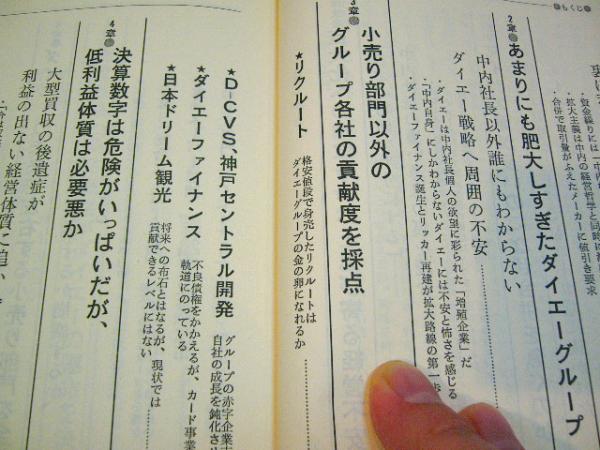 ●もくじ●
・資金繰りには「中内の経営哲学と同時に
・拡大主義は中内の経営哲学と同時に
・合併で取引量がふえたメーカーに値引き要求
2章●あまりにも肥大しすぎたダイエーグループ
中内社長以外誰にもわからない
ダイエー戦略へ周囲の不安
・ダイエーは中内社長個人の欲望に彩られた「増殖企業」だ
・「中内自身」にしかわからないダイエーには不安と怖さを感じる
・ダイエーファイナンス誕生とリッカー再建が拡大路線の第一歩
3章●小売り部門以外の
グループ各社の貢献度を採点
★リクルート
格安値段で身売したリクルートは
ダイエーグループの金の卵になれるか
★D-CVS、神戸セントラル開発
グループの赤字企業
自社の成長を鈍化させ
★ダイエーファイナンス
不良債権をかかえるが、カード事業
軌道にのっている
★日本ドリーム観光
将来への布石とはなるが、現状では
貢献できるレベルにはない
4章●決算数字は危険がいっぱいだが、
低利益体質は必要悪か
大型買収の後遺症が
利益の出ない経営体質に追い